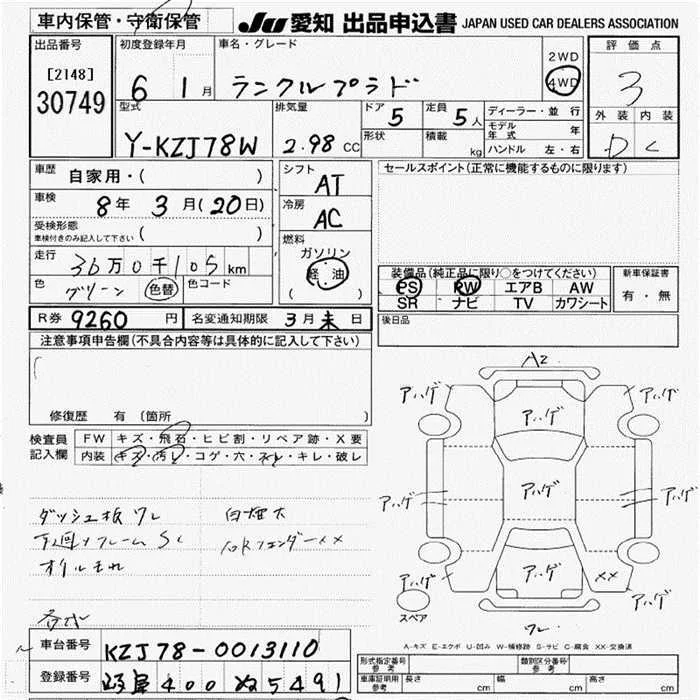 車内保管・守衛保管
JU 愛知 出品申込書 JAPAN USED CAR DEALERS ASSOCIATION
出品番号
[2148]
30749
初度登録年月
6 1月
車名・グレード
ランクルプラド
2WD
4WD
評価点
3
外装 内装
D C
型式
Y-KZJ78W
排気量
2.98 CC
ドア 5
定員 5人
形状
積載 kg
ディーラー・並行
モデル年式 年
ハンドル 左・右
車歴
自家用・( )
車検
8年 3月(20日)
受検形態
車検付きのみ記入して下さい ( )
走行
36万0千105 km
色
グリーン 色替
色コード
シフト
AT
冷房
AC
燃料
ガソリン
軽油
( )
セールスポイント(正常に機能するものに限ります)
装備品(純正品に限り○をつけてください)
PS PW エアB AW
SR ナビ TV カワシート
新車保証書
有・無
後日品
R券 9260 円
名変通知期限 3月末日
注意事項申告欄(不具合内容等は具体的に記入して下さい)
修復歴 有(箇所 )
検査員記入欄
FW キズ・飛石・ヒビ割・リペア跡・X要
内装 キズ・汚レ・コゲ・穴・スレ・キレ・破レ
ダッシュ板ワレ 白煙大
下回りフレームSC
コアRフェンダーXX
オイルモレ
A2
アハゲ アハゲ
アハゲ
アハゲ アハゲ アハゲ
アハゲ アハゲ XX
スペア
ワレ
A-キズ E-エクボ U-凹み W-補修跡 S-サビ C-腐食 XX-交換済
車台番号
KZJ78-0013110
登録番号
岐阜400 ぬ5491
形式指定番号 参考
類別区分番号 参考
車庫証明用 参考
長さ cm 幅 cm 高さ cm